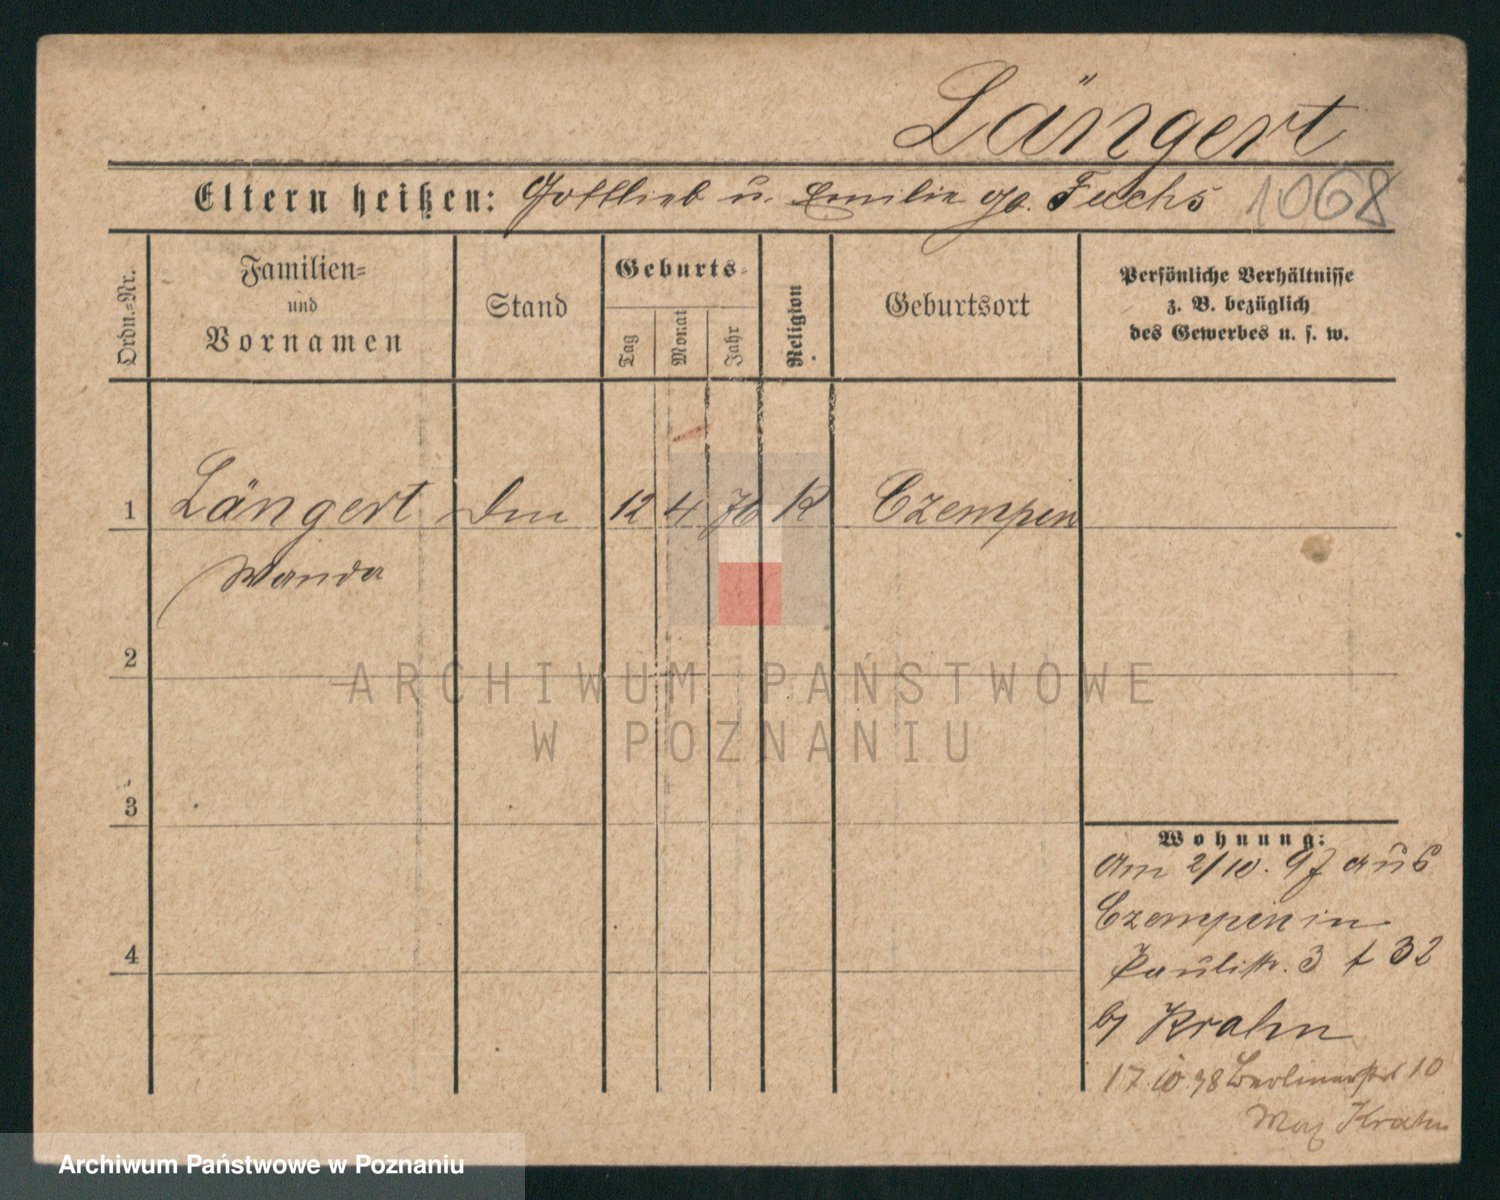 Längert
Eltern heißen: Gottlieb u. Emilie gb. Fuchs 1068
Ordn.=Nr.
Familien=
und
Vornamen
Stand
Geburts=
Tag
Monat
Jahr
Religion
Geburtsort
Persönliche Verhältnisse
z. B. bezüglich
des Gewerbes u. s. w.
1 Längert 12 4 76 K Czempin
Wanda
2
ARCHIWUM PAŃSTWOWE
W POZNANIU
3
4
Wohnung:
Am 2/10. 97 aus
Czempin in
Paulistr. 3 t 32
by Krahn
17.10.98 Berlinerstr 10
Max Krahn
Archiwum Państwowe w Poznaniu